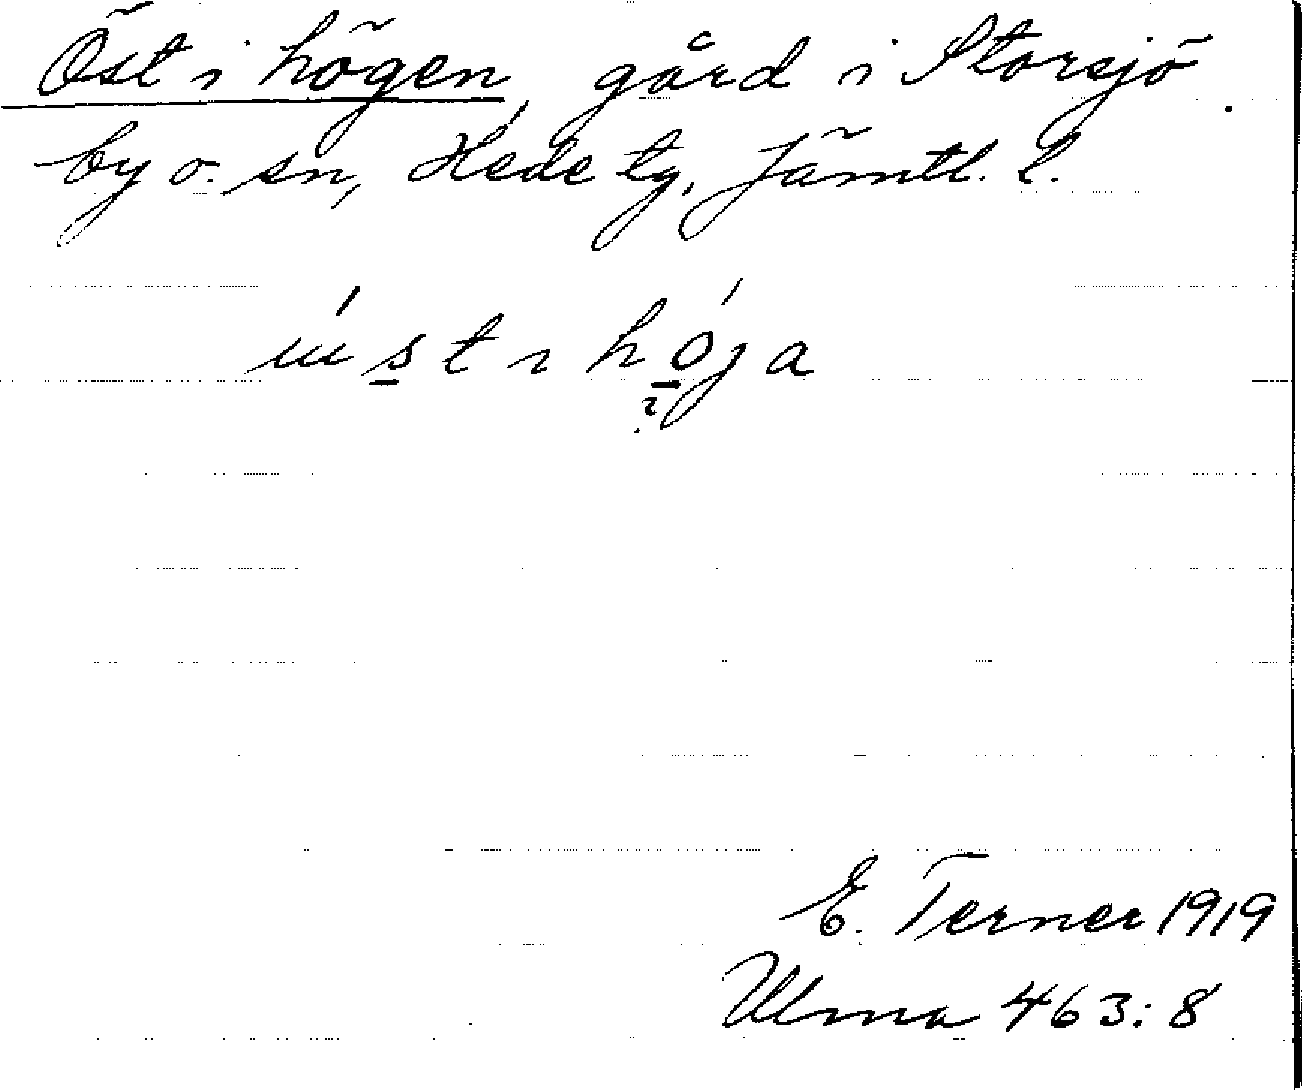 Öst i högen, gård i Storsjö
by o. sn, Hede tg, Jämtl. l.
E. Terner 1919
Ulma 463:8